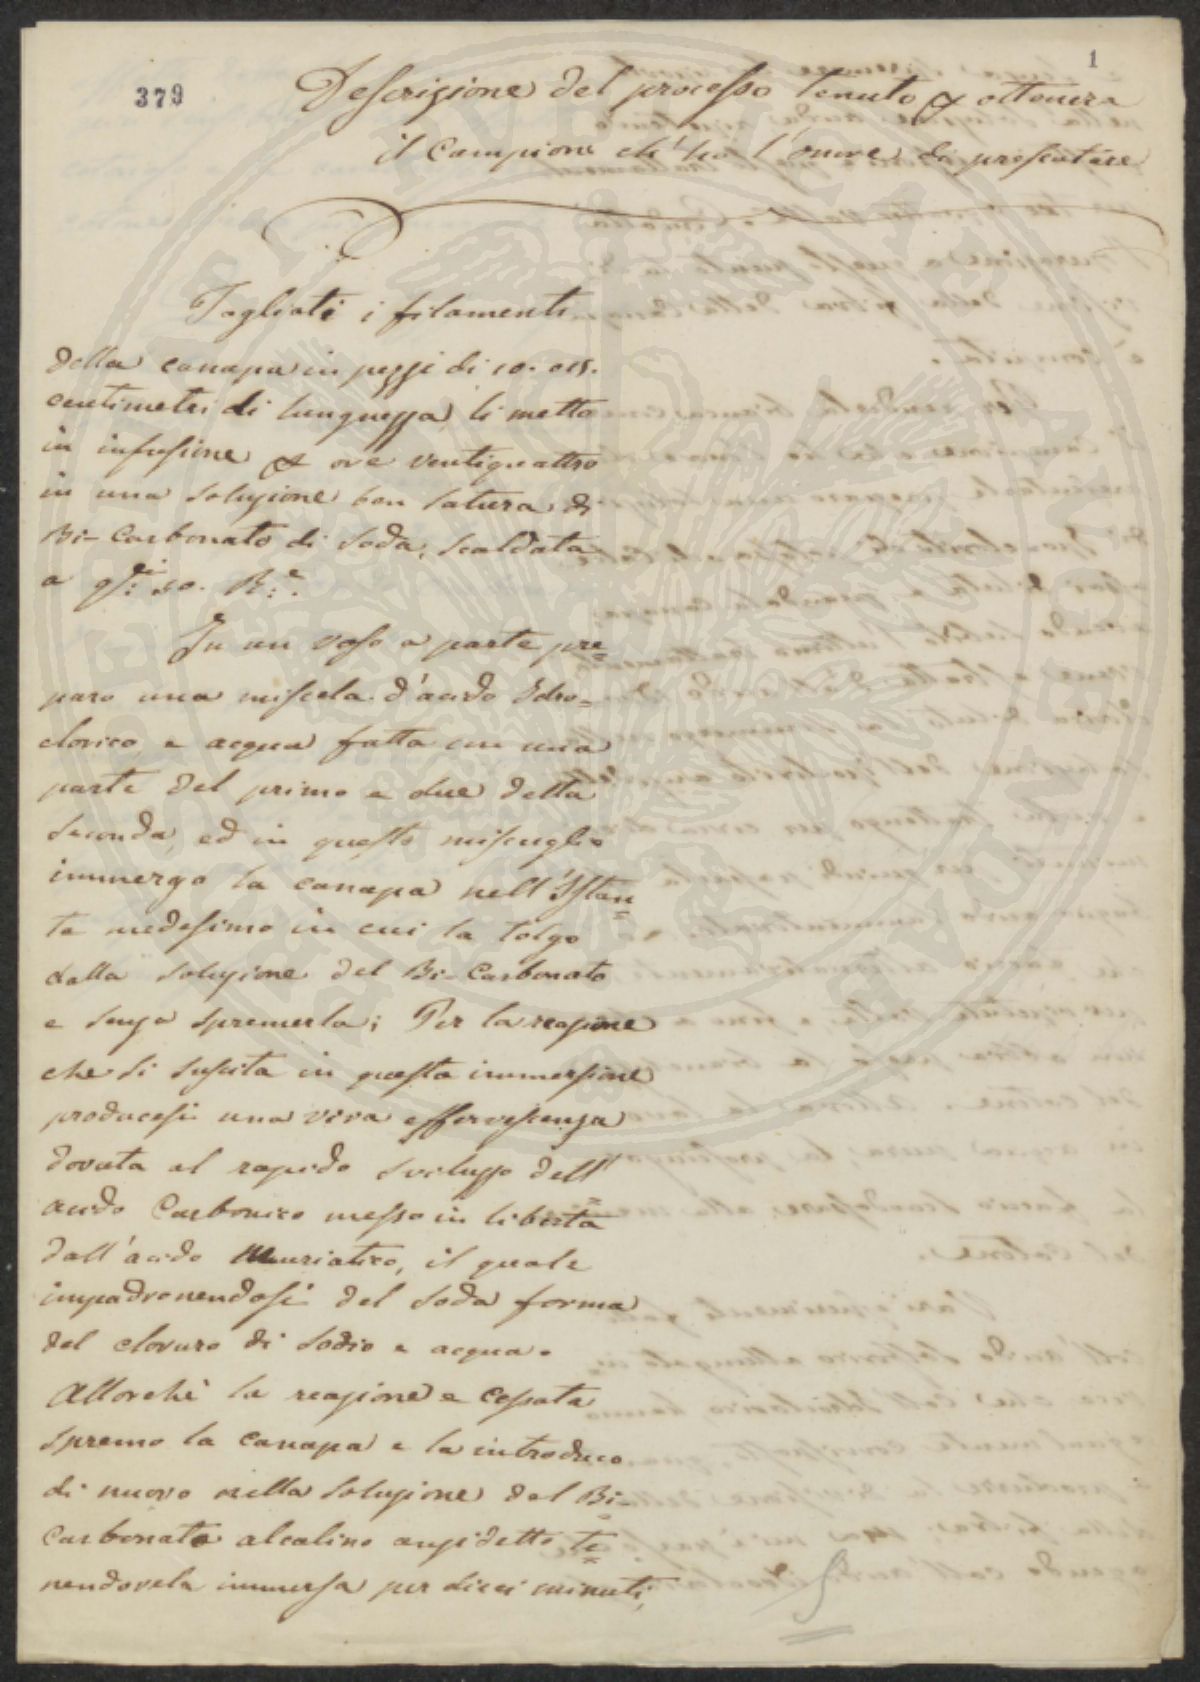 379
1
Descrizione del processo tenuto p ottenere
il Campione ch'ho l'onore di presentare
Tagliati i filamenti
della canapa in pezzi di 10. o 15.
centimetri di lunguezza, li metto
in infusione p ore ventiquattro
in una soluzione ben satura di
Bi-Carbonato di soda, scaldata
a gdi: 30. R:e.
In un vaso a parte pre=
paro una miscela d'acido Idro=
clorico e acqua fatta con una
parte del primo e due della
seconda, ed in questo miscuglio
immergo la canapa nell'Istan=
te medesimo in cui la tolgo
dalla soluzione del Bi-Carbonato
e senza spremerla; Per la reazione
che si suscita in questa immersione
producesi una viva effervescenza
dovuta al rapido sviluppo dell'
acido Carbonico messo in libertà
dall'acido Muriatico, il quale
impadronendosi del soda forma
del cloruro di sodio e acqua.
Allorchè la reazione e cessata
spremo la canapa e la introduco
di nuovo nella soluzione del Bi-
Carbonato alcalino anzidetto te=
nendovela immersa per dieci minuti,